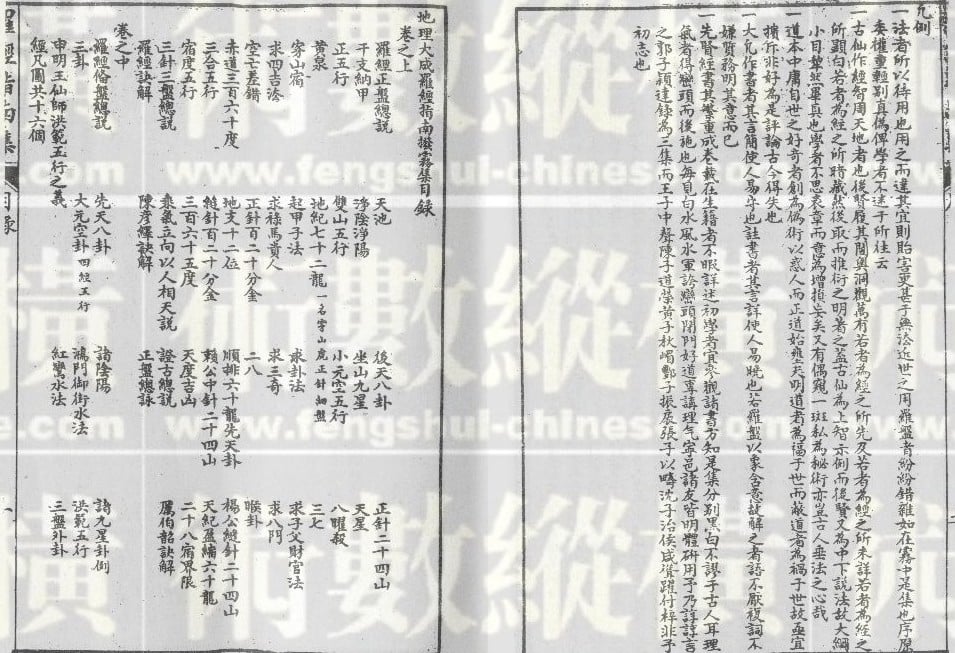 凡例
一法者所以待用也用之而違其宜則貽害更甚于無法近世之用羅盤者紛紛錯雜如在霧中是集也序原
委權重輕別真偽俾學者不迷于所往云
一古仙作經智周天地者也後賢履其閫奧洞觀萬有若者為經之所先及若者為經之所未詳若者為經之
所顯白若者為經之所暗藏然後取而推衍之明者之蓋古仙為上智示例而後賢又為中下說法故大綱
小目犁然渾真也學者不思表章而意為增損妄矣又有偶窺一斑私為秘術亦豈古人垂法之心哉
一道本中庸自世之好奇者創為偽術以惑人而正道始晦夫明道者為福于世而蔽道者為禍于世故亟宜
擯斥非好為是評論古今得失也
一大凡作書者其言簡使人易守也註書者其言詳使人易曉也若羅盤以象含意故解之者語不厭複詞不
嫌贅務明其意而已
一先賢經書其繁重成卷載在生籍者不暇詳述初學者宜參觀諸書方知是集分別黑白不謬于古人耳理
氣者得巒頭而後施也每見白水風水軍誇巒頭閉門好道專講理气寧邑諸友皆明體研用予乃諄諄言
之郭子穎達錄為三集而王子中聲陳子道榮黃子秋嵋子振張子以疇沈子治侯咸躍付梓非予
初志也
地理大成羅經指南撥霧集目錄
卷之上
羅經正盤總說 天池 後天八卦 正針二十四山
干支納甲 淨陰淨陽 坐山九星 天星
正五行 雙山五行 小元空五行 八曜殺
黃泉 地紀七十二龍 一名穿山虎正針細盤 三七
穿山宿 起甲子法 求卦法 求子父財官法
求四吉洽 求祿馬貴人 求三奇 求八門
空亡差錯 正針百二十分金 二八 睽卦
赤道三百六十度 地支十二位 順排六十龍先天卦 楊公縫針二十四山
三合五行 縫針百二十分金 賴公中針二十四山 天紀盈縮六十龍
宿度五行 三百六十五度 天度吉凶 二十八宿界限
三針三盤總說 乘氣立向以人相天說 證古總說 厲伯韶訣解
羅經訣解 陳彦繹訣解 正盤總詠
卷之中
羅經偹盤總說 先天八卦 諸陰陽 諸九星卦例
三卦 大元空卦 四經五行 鴻門御街水法 洪範五行
申明王仙師洪範五行之義 紅鸞水法 三盤外卦
經凡圖共十六個
羅經指南集
目錄
一
縱數術橫
www.fengshui-chinese.com